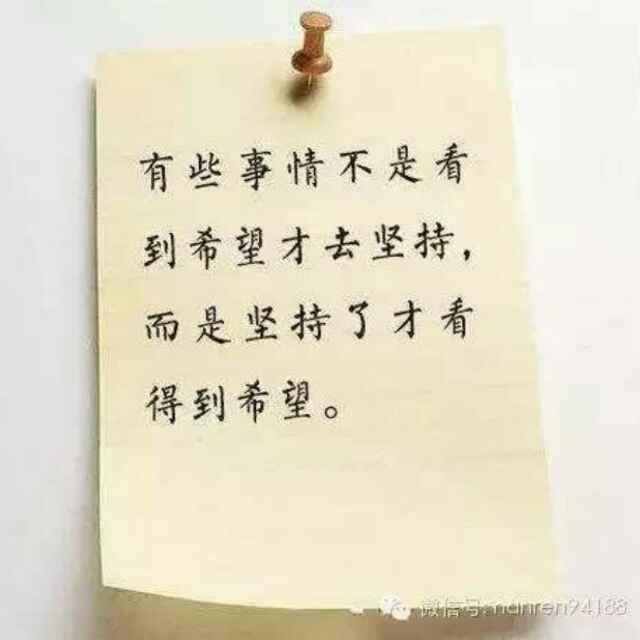 有些事情不是看
到希望才去坚持，
而是坚持了才看
得到希望。
微信号:nanren94188